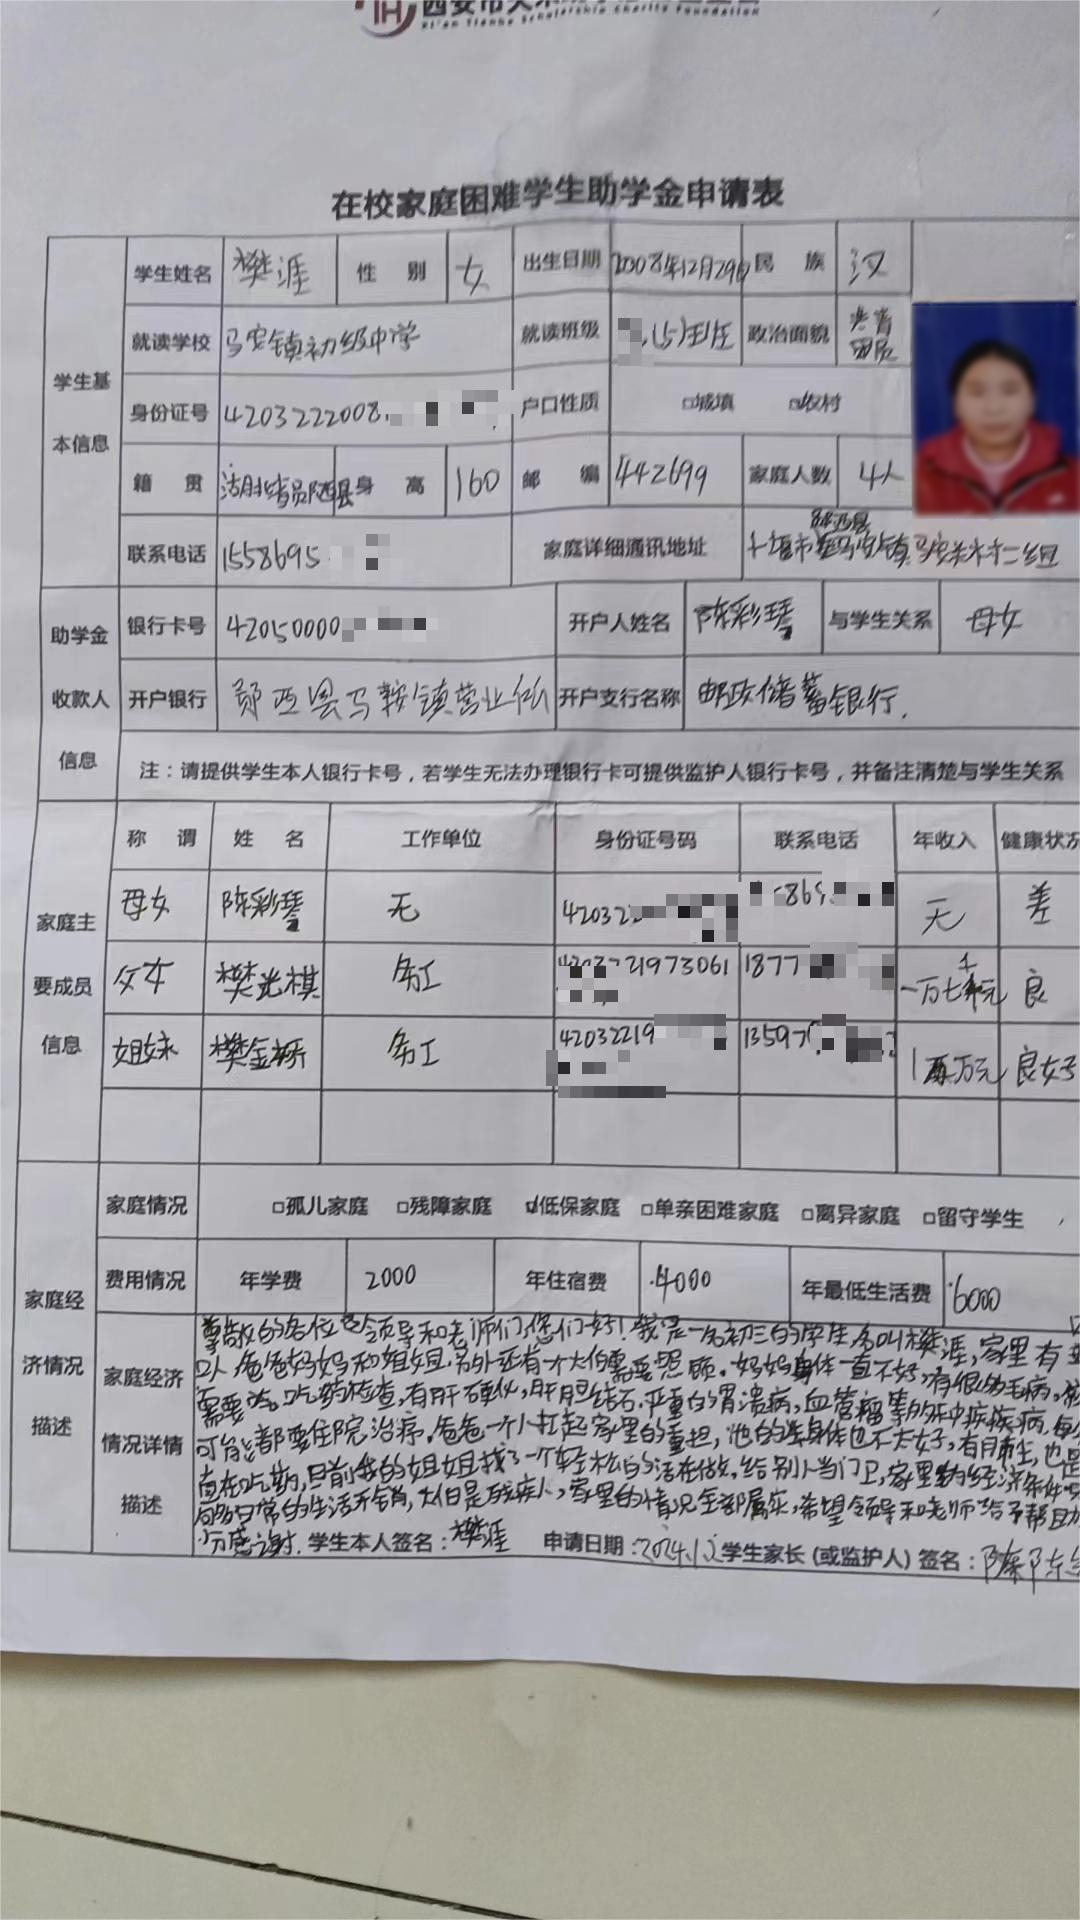 Xi'an Tianhe Scholarship Charity Foundation
在校家庭困难学生助学金申请表
学生基本信息
学生姓名 樊涯 性别 女 出生日期 2008年12月29日 民族 汉
就读学校 马安镇初级中学 就读班级 (5)班 政治面貌 共青团员
身份证号 4203222008 户口性质 □城填 ☑农村
籍贯 湖北省郧西县 身高 160 邮编 442699 家庭人数 4人
联系电话 1558695 家庭详细通讯地址 十堰市郧西县马安镇马安关村二组
助学金收款人信息
银行卡号 42050000 开户人姓名 陈彩琴 与学生关系 母女
开户银行 郧西县马鞍镇营业所 开户支行名称 邮政储蓄银行.
注：请提供学生本人银行卡号，若学生无法办理银行卡可提供监护人银行卡号，并备注清楚与学生关系
家庭主要成员信息
称谓 姓名 工作单位 身份证号码 联系电话 年收入 健康状况
母女 陈彩琴 无 42032 869 无 差
父女 樊光棋 务工 4203221973061 1877 一万七千元 良
姐妹 樊金桥 务工 42032219 13597 1万元 良好
家庭经济情况描述
家庭情况 □孤儿家庭 □残障家庭 ☑低保家庭 □单亲困难家庭 □离异家庭 □留守学生
费用情况 年学费 2000 年住宿费 4000 年最低生活费 6000
家庭经济情况详情描述
尊敬的各位领导和老师们，您们好！我是一名初三的学生，名叫樊涯，家里有
口人，爸爸妈妈和姐姐，另外还有一个大伯需要照顾。妈妈身体一直不好，有很多毛病，
需要吃药检查，有肝硬化，肝胆结石，严重的胃溃疡，血管瘤等多种疾病，每
可能都要住院治疗。爸爸一个人扛起家里的重担，他的身体也不太好，有 也是
在吃药，目前我的姐姐找了一个轻松的活在做，给别人当门卫，家里的经济条件
日常的生活开销，大伯是残疾人，家里的情况全部属实，希望领导和老师给予帮助
分感谢. 学生本人签名：樊涯 申请日期：2024.1.2 学生家长 (或监护人) 签名：陈